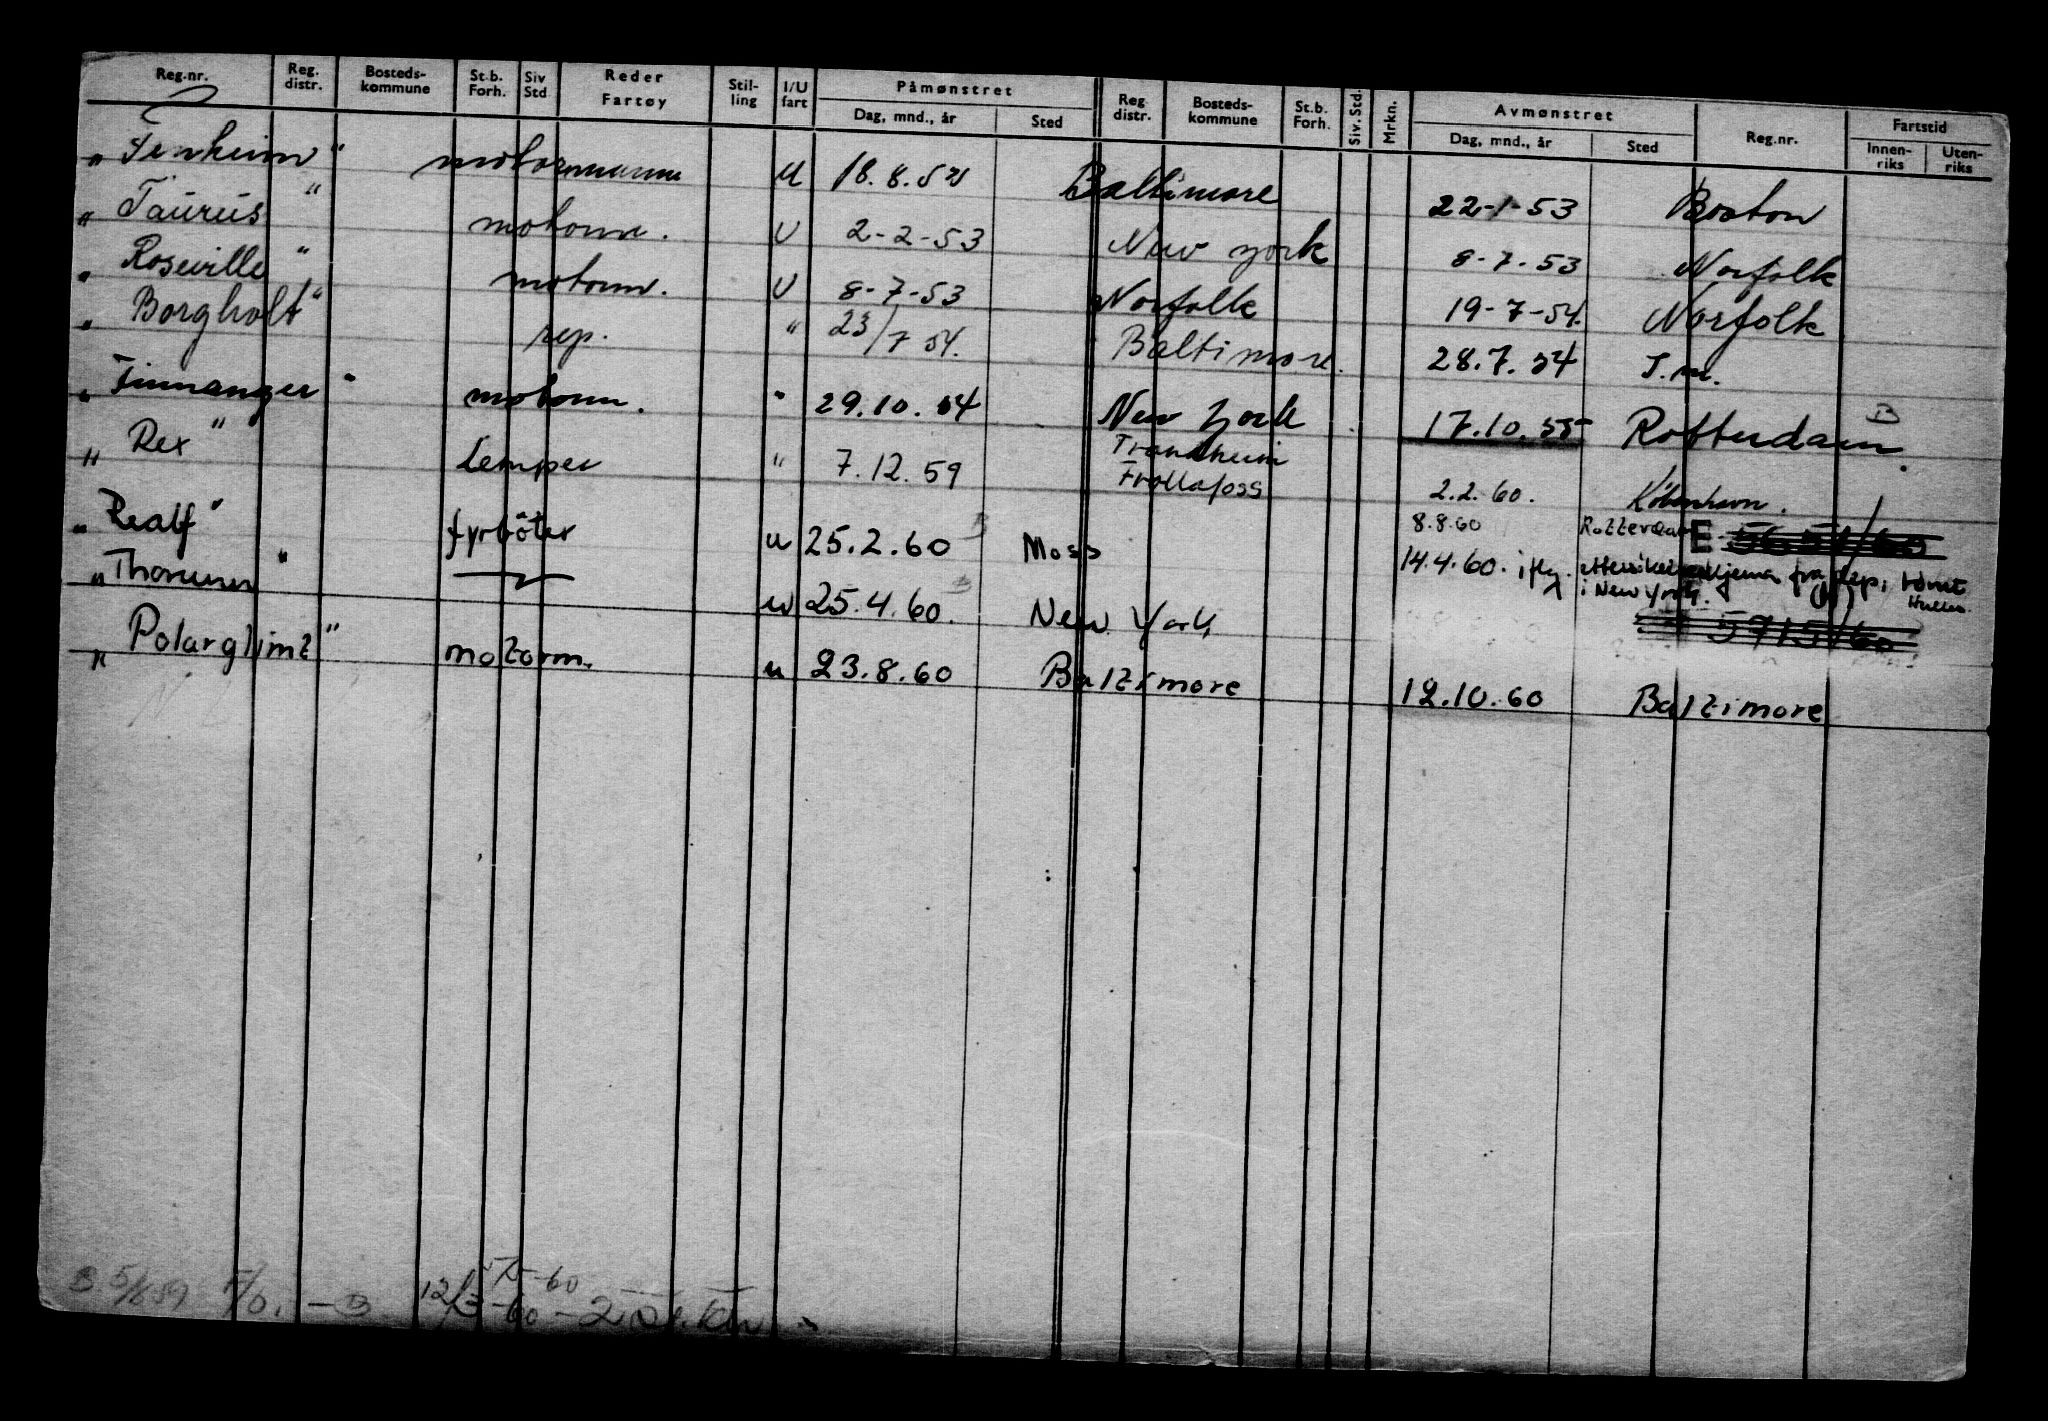 Reg.nr. Reg. distr. Bosteds-kommune St.b. Forh. Siv Std Reder Fartøy Stil-ling I/U fart Påmønstret Dag, mnd., år Sted Reg distr. Bosteds-kommune St.b. Forh. Siv. Std. Mrkn. Avmønstret Dag, mnd., år Sted Reg.nr. Fartstid Innen-riks Uten-riks
" Fenheim " motormann U 18.8.52 Baltimore 22-1-53 Boston
" Taurus " motorm. U 2-2-53 New York 8-7-53 Norfolk
" Roseville " motorm. U 8-7-53 Norfolk 19-7-54. Norfolk
" Borgholt " rep. " 23/7 54. Baltimore. 28.7.54 S.m.
" Finnanger " motorm. " 29.10.54 New York 17.10.55 Rotterdam. B
" Rex " Lemper " 7.12.59 Trondheim Frollafoss 2.2.60. København.
" Realf " fyrbøter u 25.2.60 Moss 8.8.60 Rotterdam E
14.4.60. i flg. skjema fra rep. rømt
" Thorunn " u 25.4.60. New York i New York. Hullen.
5715/60
" Polarglimt " motorm. u 23.8.60 Baltimore 12.10.60 Baltimore